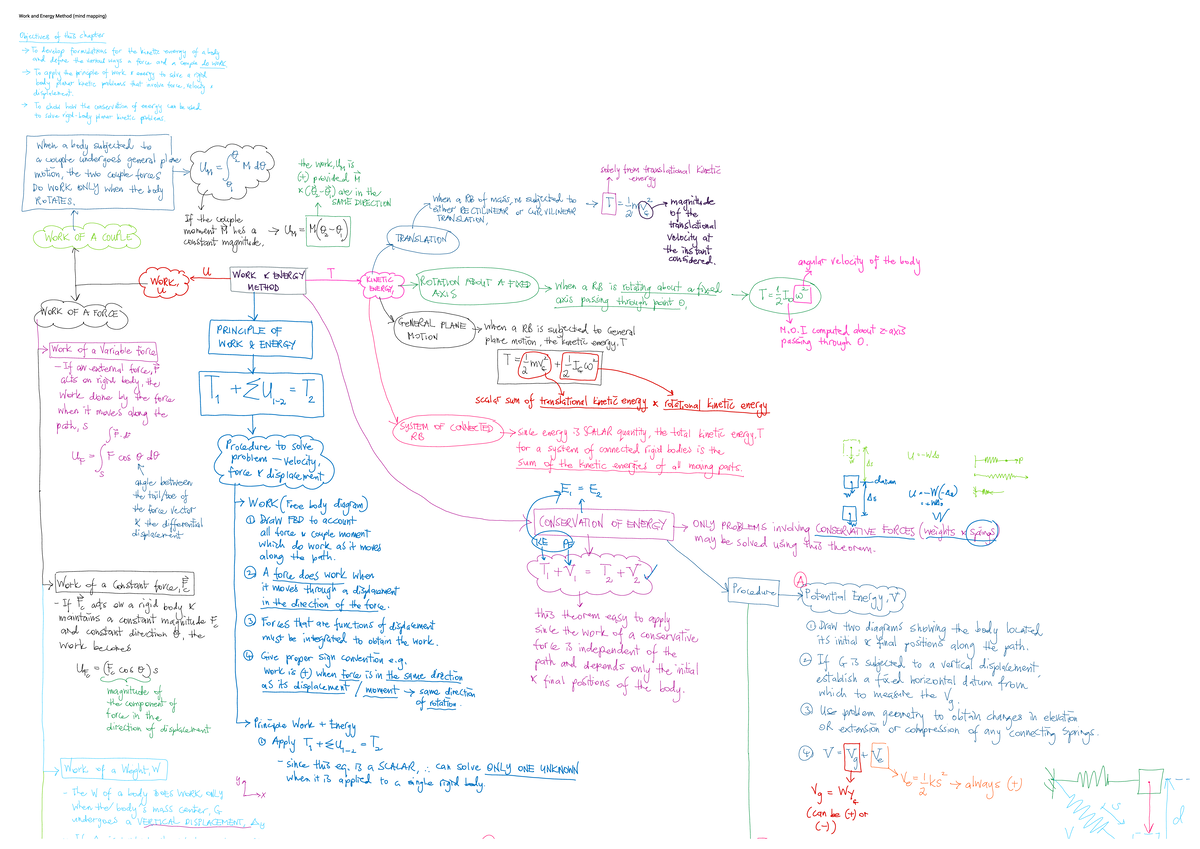 Work and Energy Method (mind mapping)
Objectives of this chapter
→ To develop formulations for the kinetic energy of a body
and define the various ways a force and a couple do work.
→ To apply the principle of work & energy to solve a rigid
body planar kinetic problems that involve force, velocity &
displacement.
→ To show how the conservation of energy can be used
to solve rigid-body planar kinetic problems.
When a body subjected to
a couple undergoes general plane
motion, the two couple forces
DO WORK ONLY when the body
ROTATES.
U_M = ∫ M dθ
θ₂
θ₁
If the couple
moment M has a
constant magnitude,
→ U_M = M(θ₂-θ₁)
the work, U_M is
(+) provided M
& (θ₂-θ₁) are in the
SAME DIRECTION
WORK OF A COUPLE
WORK, U
U
WORK & ENERGY
METHOD
T
KINETIC
ENERGY,
TRANSLATION
when a RB of mass, m subjected to
either RECTILINEAR or CURVILINEAR
TRANSLATION,
solely from translational kinetic
energy
→ T = 1/2 m v_G²
→ magnitude
of the
translational
velocity at
the instant
considered.
ROTATION ABOUT A FIXED
AXIS
→ when a RB is rotating about a fixed
axis passing through point O,
T = 1/2 I_O ω²
angular velocity of the body
M.O.I computed about z-axis
passing through O.
GENERAL PLANE
MOTION
→ when a RB is subjected to General
plane motion, the kinetic energy, T
T = 1/2 m v_G² + 1/2 I_G ω²
scalar sum of translational kinetic energy & rotational kinetic energy
SYSTEM OF CONNECTED
RB
→ Since energy is SCALAR quantity, the total kinetic energy, T
for a system of connected rigid bodies is the
sum of the kinetic energies of all moving parts.
WORK OF A FORCE
→ Work of a Variable Force
- If an external force, F
acts on rigid body, the
work done by the force
when it moves along the
path, s
∫F·dr
U_F = ∫ F cos θ dθ
S
angle between
the tail/toe of
the force vector
& the differential
displacement
→ Work of a Constant force, F_c
- If F_c acts on a rigid body &
maintains a constant magnitude F_c
and constant direction θ, the
work becomes
U_Fc = (F_c cos θ) s
magnitude of
the component of
force in the
direction of displacement
→ Work of a Weight, W
- The W of a body DOES WORK ONLY
when the body's mass center, G
undergoes a VERTICAL DISPLACEMENT, Δy
y
x
PRINCIPLE OF
WORK & ENERGY
T₁ + ΣU₁₋₂ = T₂
Procedure to solve
problem - velocity,
force & displacement
→ WORK (Free body diagram)
① DRAW FBD to account
all force & couple moment
which do work as it moves
along the path.
② A force does work when
it moves through a displacement
in the direction of the force.
③ Forces that are functions of displacement
must be integrated to obtain the work.
④ Give proper sign convention e.g.
work is (+) when force is in the same direction
as its displacement / moment → same direction
of rotation.
→ Principle Work + Energy
① Apply T₁ + ΣU₁₋₂ = T₂
- since this eq. is a SCALAR, ∴ can solve ONLY ONE UNKNOWN
when it is applied to a single rigid body.
E₁ = E₂
CONSERVATION OF ENERGY
→ ONLY PROBLEMS involving CONSERVATIVE FORCES (weights & springs)
may be solved using this theorem.
KE PE
T₁ + V₁ = T₂ + V₂
this theorem easy to apply
since the work of a conservative
force is independent of the
path and depends only the initial
& final positions of the body.
Δs
U = -WΔs
datum
W
Δs
U = -W(-Δs)
= WΔs
W
P
Procedure
A
Potential Energy, V
① Draw two diagrams showing the body located
its initial & final positions along the path.
② If G is subjected to a vertical displacement,
establish a fixed horizontal datum from
which to measure the Vg.
③ Use problem geometry to obtain changes in elevation
OR extension or compression of any connecting springs.
④ V = Vg + Ve
Ve = 1/2 ks² → always (+)
Vg = Wy_G
(can be (+) or
(-))
d